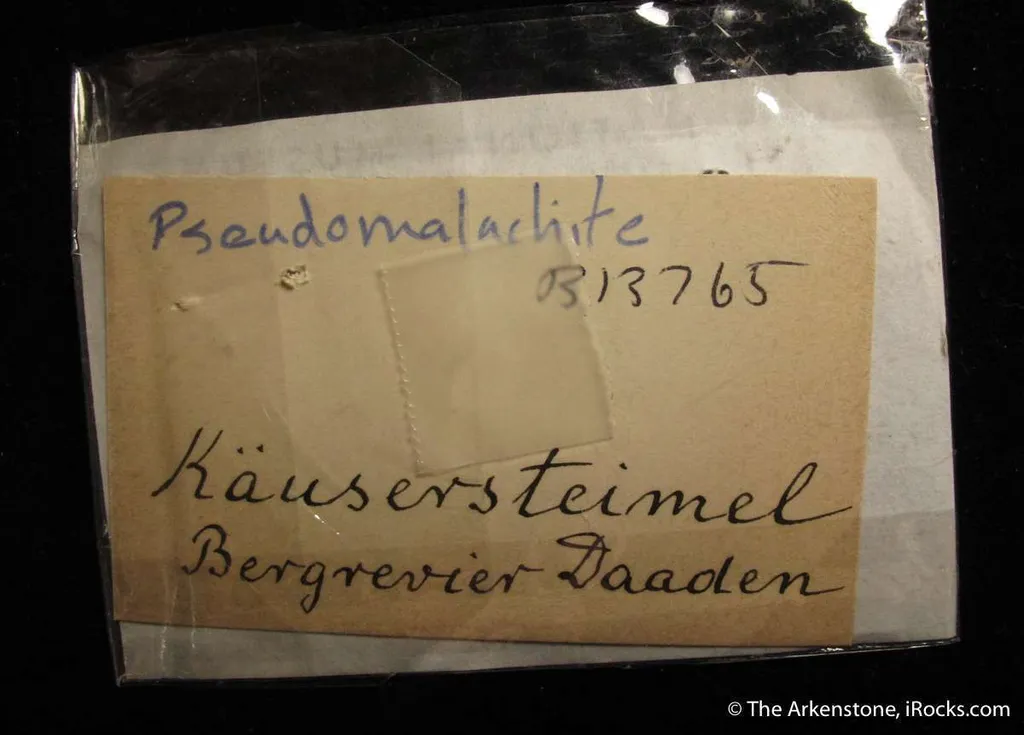 Pseudomalachite
B13765
Käusersteimel
Bergrevier Daaden
© The Arkenstone, iRocks.com